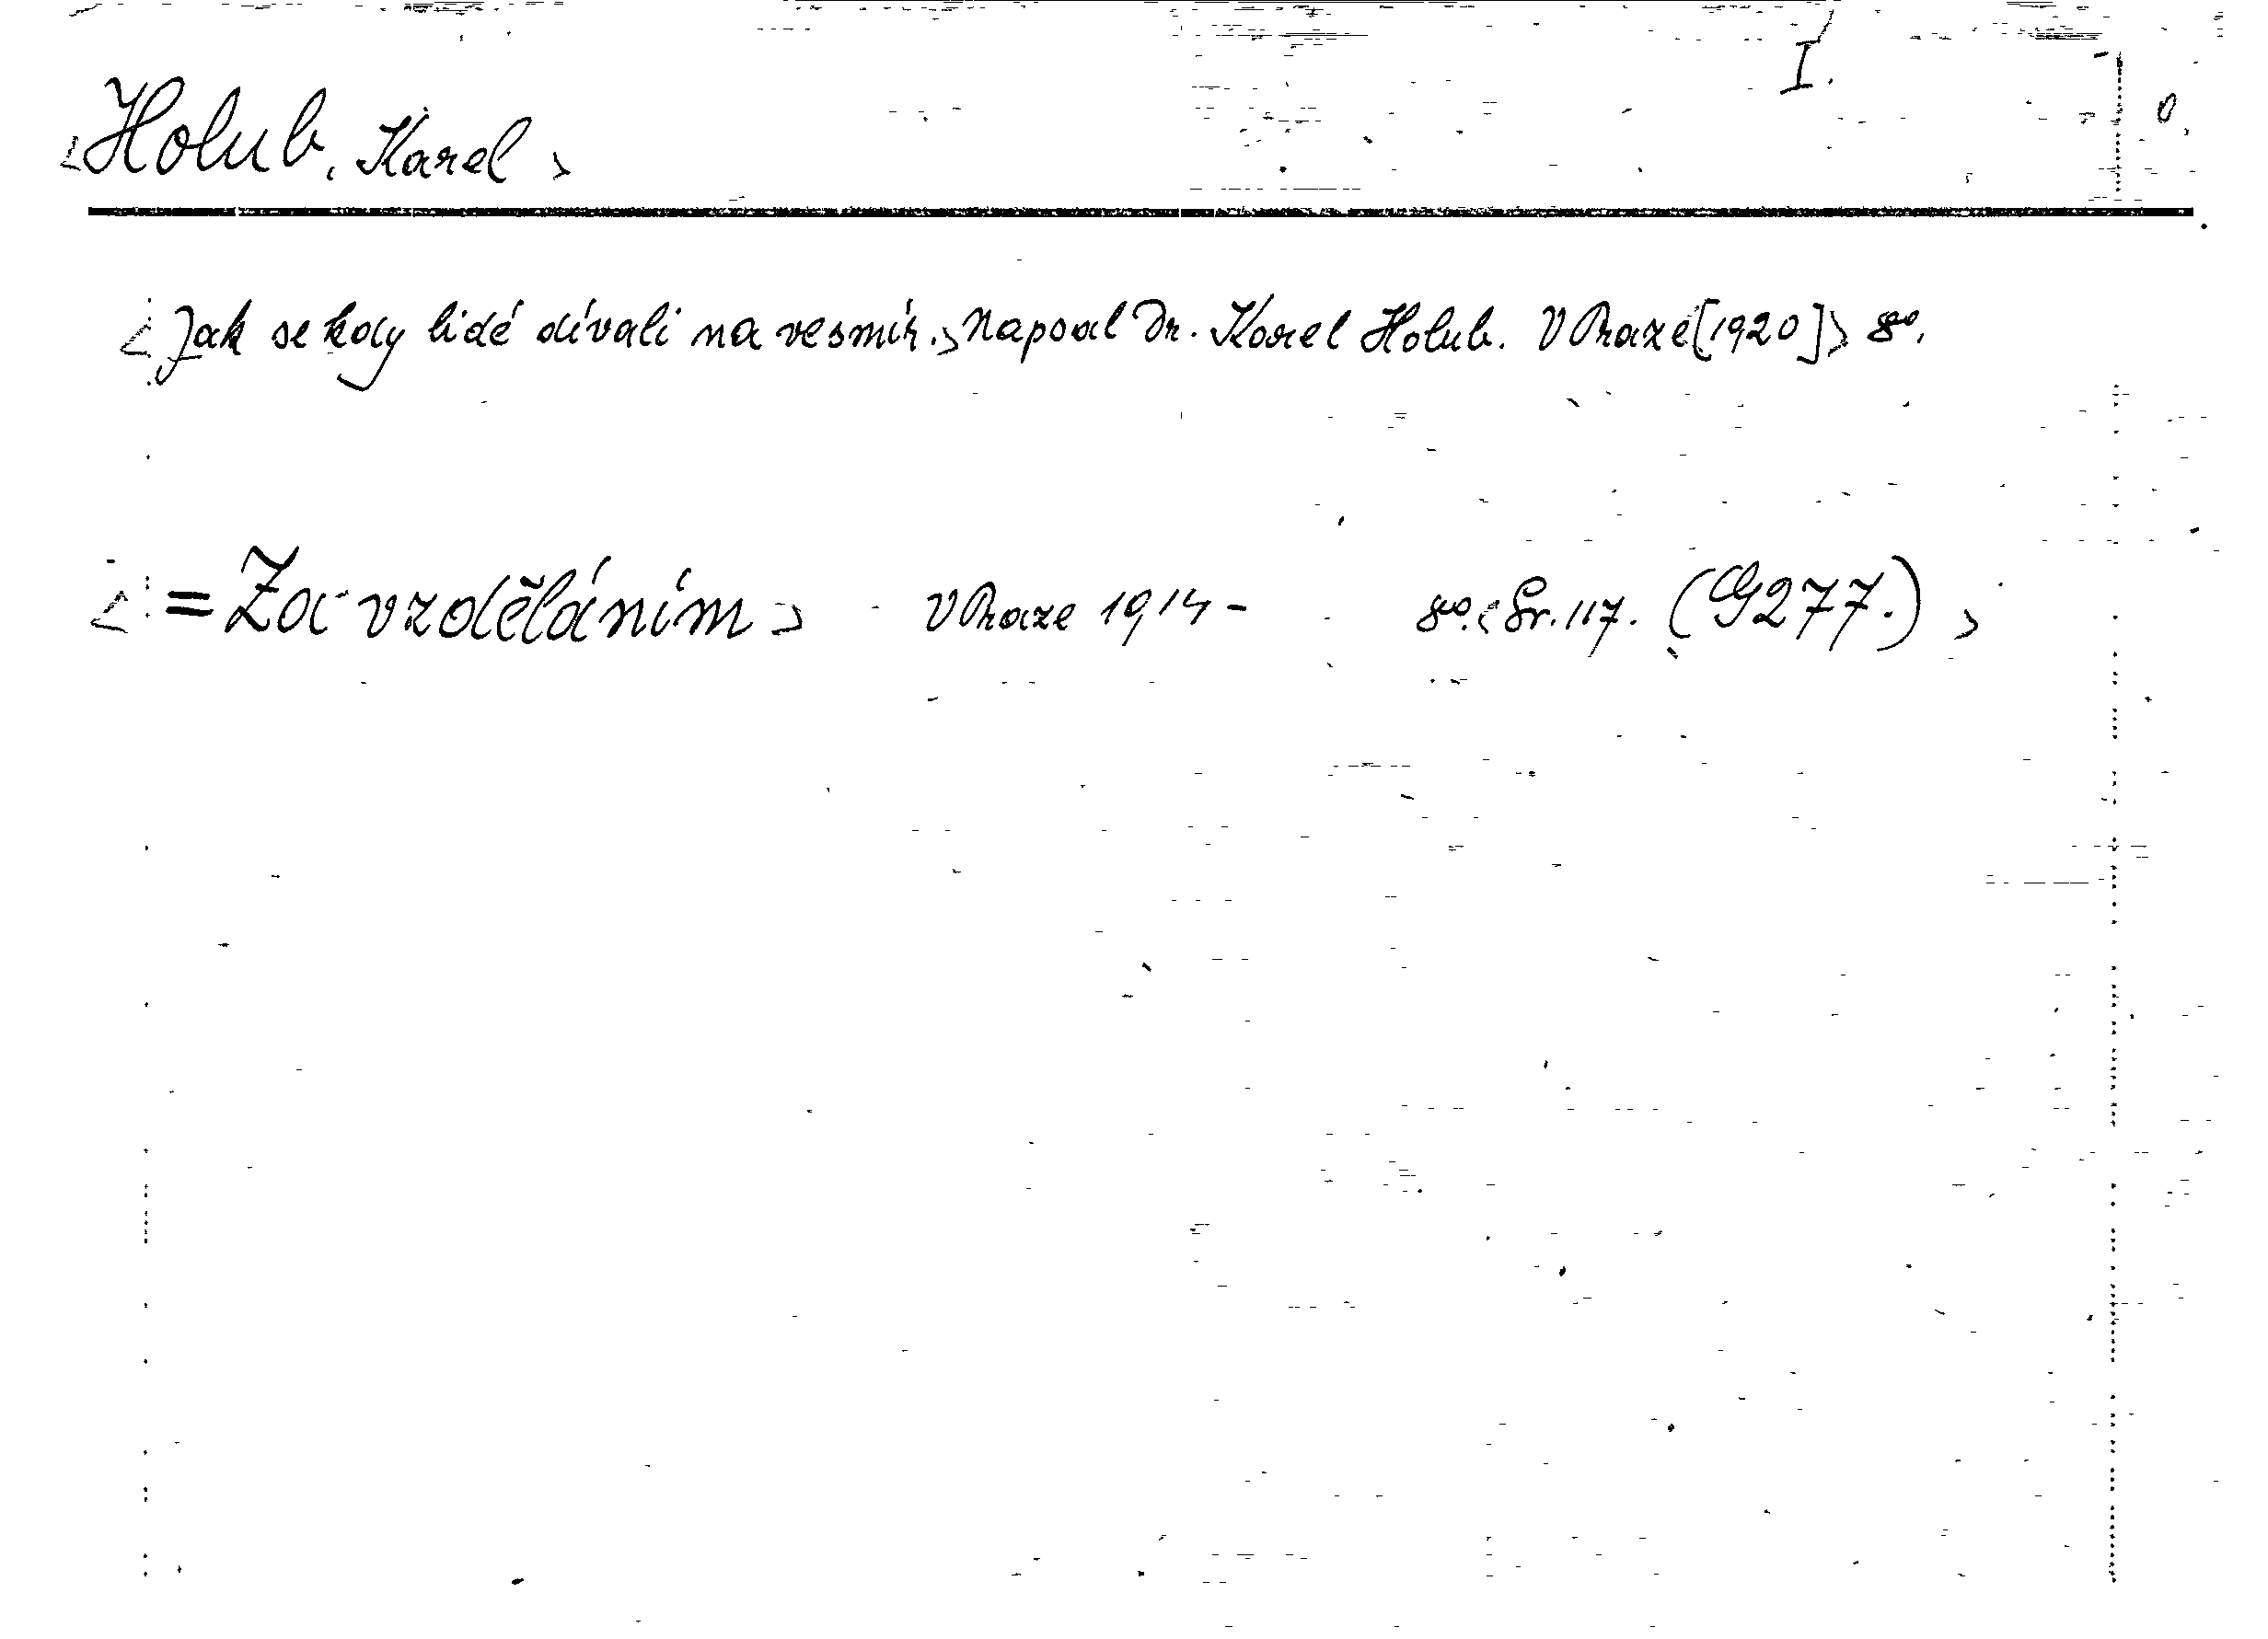 I. 0.
<Holub, Karel>
<Jak se kdy lidé dívali na vesmír.> Napsal Dr. Karel Holub. V Praze [1920]> 8°.
<= Za vzděláním> V Praze 1914- 8°. <Sv. 117. (G277.)>